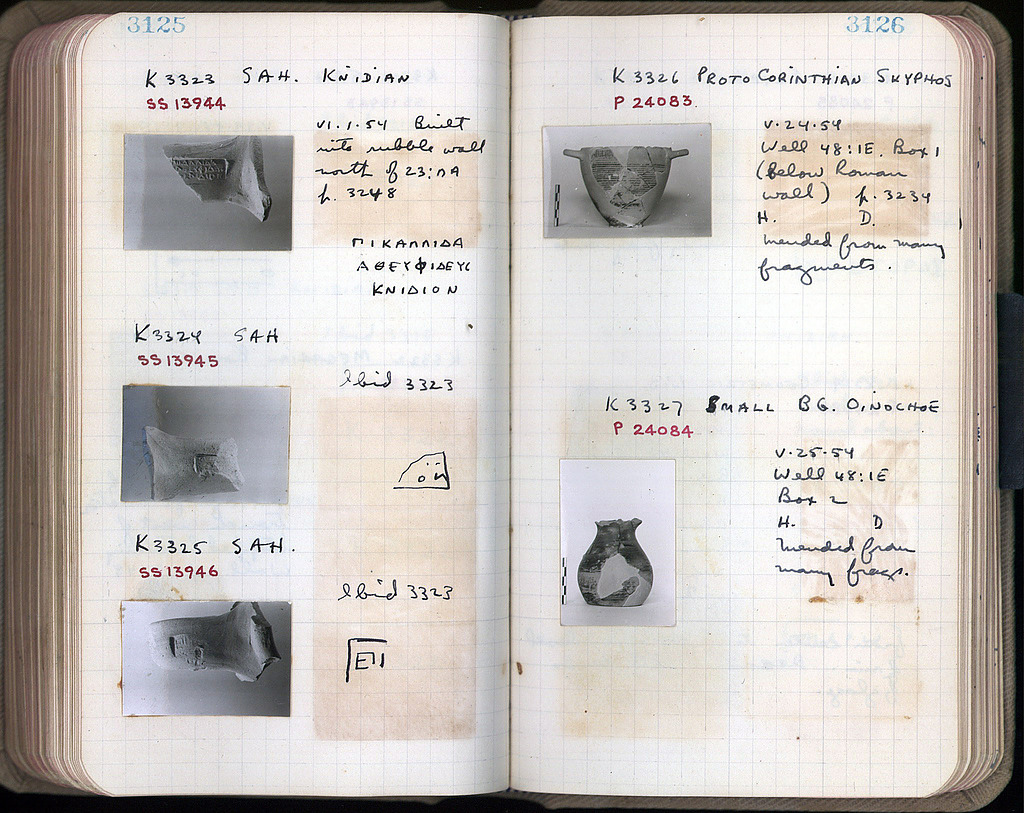 3125
K 3323 SAH. KNIDIAN
SS 13944
VI.1.54 Built
into rubble wall
north of 23:ΠΑ
p. 3248
ΠΙΚΑΛΛΙΔΑ
ΑΘΕΥΦΙΔΕΥC
ΚΝΙΔΙΟΝ
K 3324 SAH
SS 13945
Ibid 3323
K 3325 SAH.
SS 13946
Ibid 3323
ΕΠΙ
3126
K 3326 PROTOCORINTHIAN SKYPHOS
P 24083
V.24.54
Well 48:1E. Box 1
(below Roman
wall) p. 3234
H. D.
Mended from many
fragments.
K 3327 SMALL BG. OINOCHOE
P 24084
V.25.54
Well 48:1E
Box 2
H. D
Mended from
many frags.